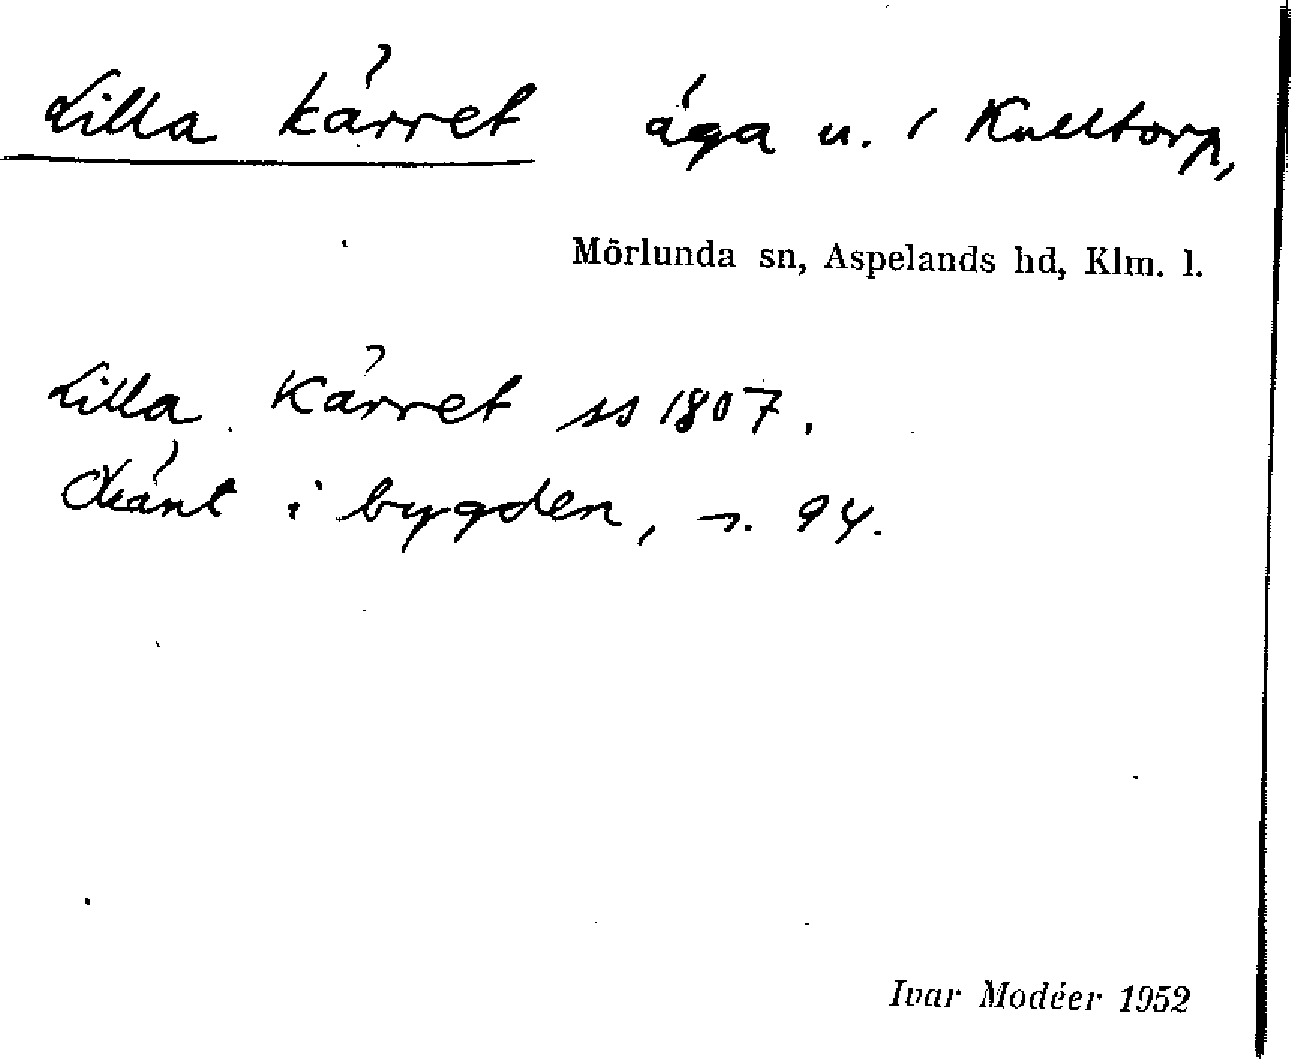 Lilla kärret äga u. i Kulltorp,
Mörlunda sn, Aspelands hd, Klm. l.
Lilla Kärret ss 1807.
Okänt i bygden, s. 94.
Ivar Modéer 1952